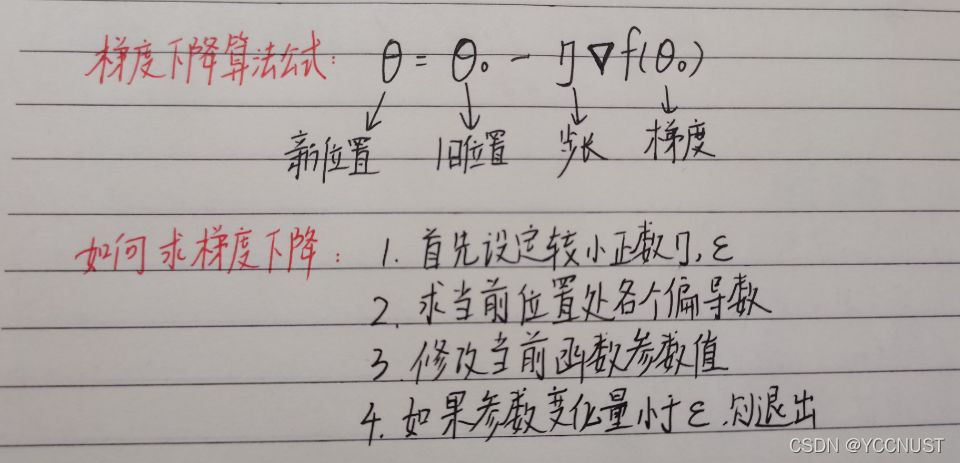 梯度下降算法公式: θ = θ₀ - η∇f(θ₀)
新位置 旧位置 步长 梯度
如何求梯度下降: 1. 首先设定较小正数η, ε
2. 求当前位置处各个偏导数
3. 修改当前函数参数值
4. 如果参数变化量小于ε, 则退出
CSDN @YCCNUST